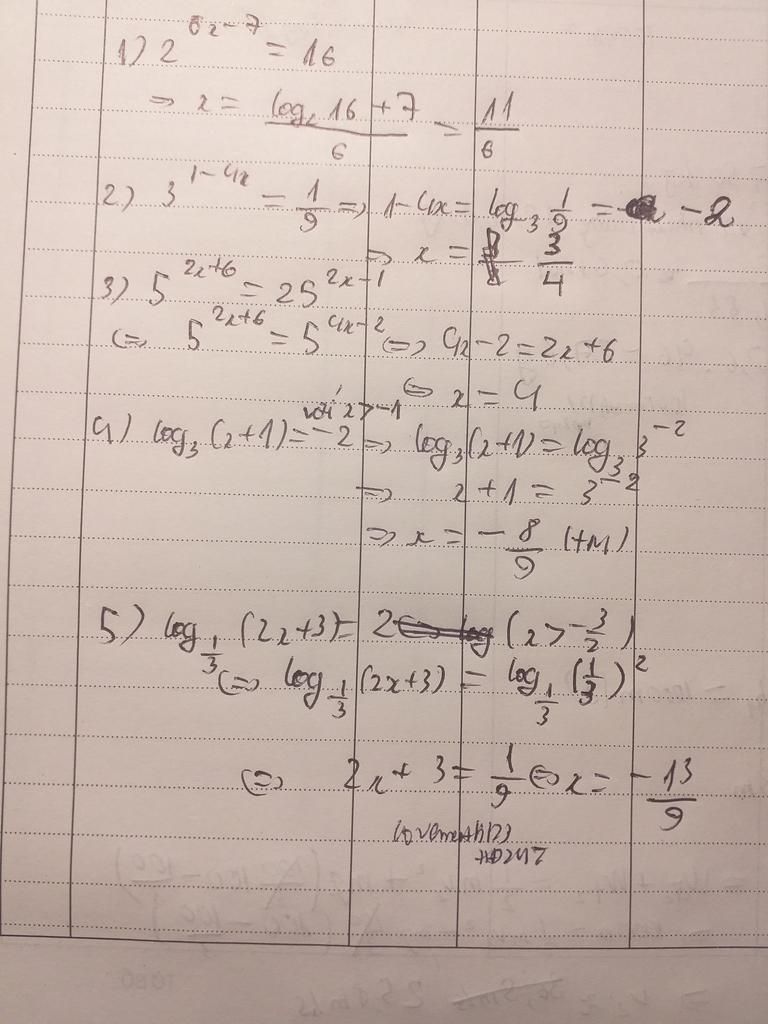 1) 2^(6x-7) = 16
=> x = (log₂ 16 + 7)/6 = 11/6
2) 3^(1-4x) = 1/9 => 1-4x = log₃ 1/9 = -2
=> x = 3/4
3) 5^(2x+6) = 25^(2x-1)
<=> 5^(2x+6) = 5^(4x-2) <=> 4x-2 = 2x+6
<=> x = 4
4) log₃(x+1) = -2 với x > -1 => log₃(x+1) = log₃ 3^(-2)
=> x+1 = 3^(-2)
=> x = -8/9 (tM)
5) log_(1/3) (2x+3) = 2 (x > -3/2)
<=> log_(1/3) (2x+3) = log_(1/3) (1/3)^2
<=> 2x + 3 = 1/9 <=> x = -13/9